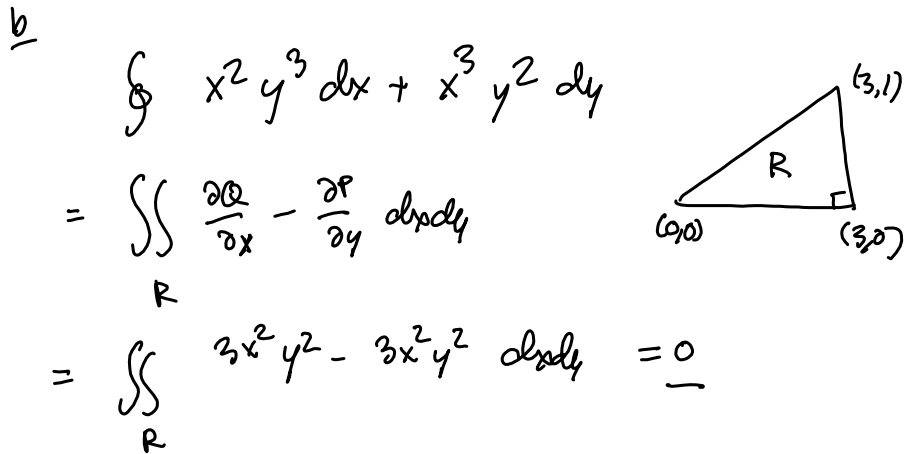 b
∮ x² y³ dx + x³ y² dy
= ∬_R ∂Q/∂x − ∂P/∂y dxdy
= ∬_R 3x² y² − 3x² y² dxdy = 0
(3,1)
R
(0,0)
(3,0)